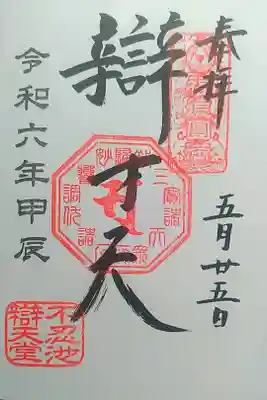 奉拝
五月廿五日
辯才天
令和六年甲辰
不忍池
辯天堂